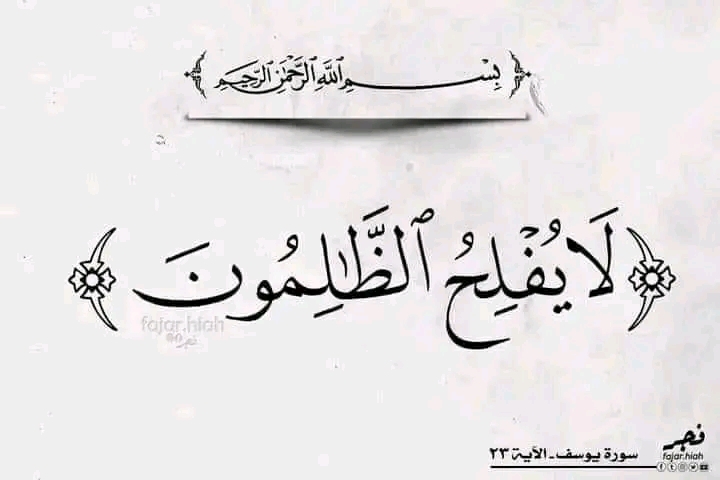 بِسْمِ ٱللَّهِ ٱلرَّحْمَٰنِ ٱلرَّحِيمِ
﴿لَا يُفْلِحُ ٱلظَّٰلِمُونَ﴾
fajar.hiah
فجر
سورة يوسف ـ الآية ٢٣
فجر
fajar.hiah